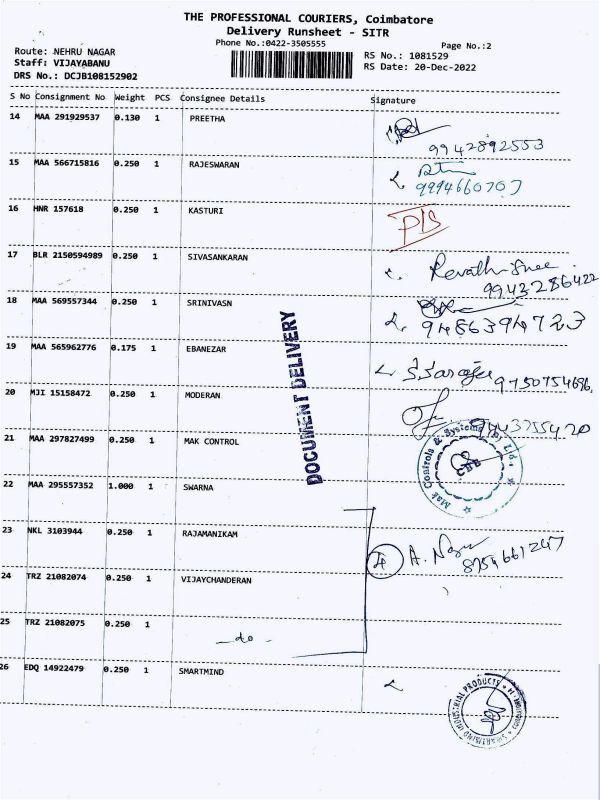 THE PROFESSIONAL COURIERS, Coimbatore
Delivery Runsheet - SITR
Phone No.:0422-3505555
Page No.:2
Route: NEHRU NAGAR
RS No.: 1081529
Staff: VIJAYABANU
RS Date: 20-Dec-2022
DRS No.: DCJB108152902
S No Consignment No Weight PCS Consignee Details Signature
14 MAA 291929537 0.130 1 PREETHA
9942892553
15 MAA 566715816 0.250 1 RAJESWARAN
9994660707
16 HNR 157618 0.250 1 KASTURI
17 BLR 2150594989 0.250 1 SIVASANKARAN Revathi Shree
9943286422
18 MAA 569557344 0.250 1 SRINIVASN
9486394723
19 MAA 565962776 0.175 1 EBANEZAR
9750754686
20 MJI 15158472 0.250 1 MODERAN
DOCUMENT DELIVERY
21 MAA 297827499 0.250 1 MAK CONTROL
Mak Controls & Systems (P) Ltd.,
CBE
22 MAA 295557352 1.000 1 SWARNA
23 NKL 3103944 0.250 1 RAJAMANIKAM
4
8754661247
24 TRZ 21082074 0.250 1 VIJAYCHANDERAN
25 TRZ 21082075 0.250 1
-do-
26 EDQ 14922479 0.250 1 SMARTMIND
SMARTMIND INDUSTRIAL PRODUCTS